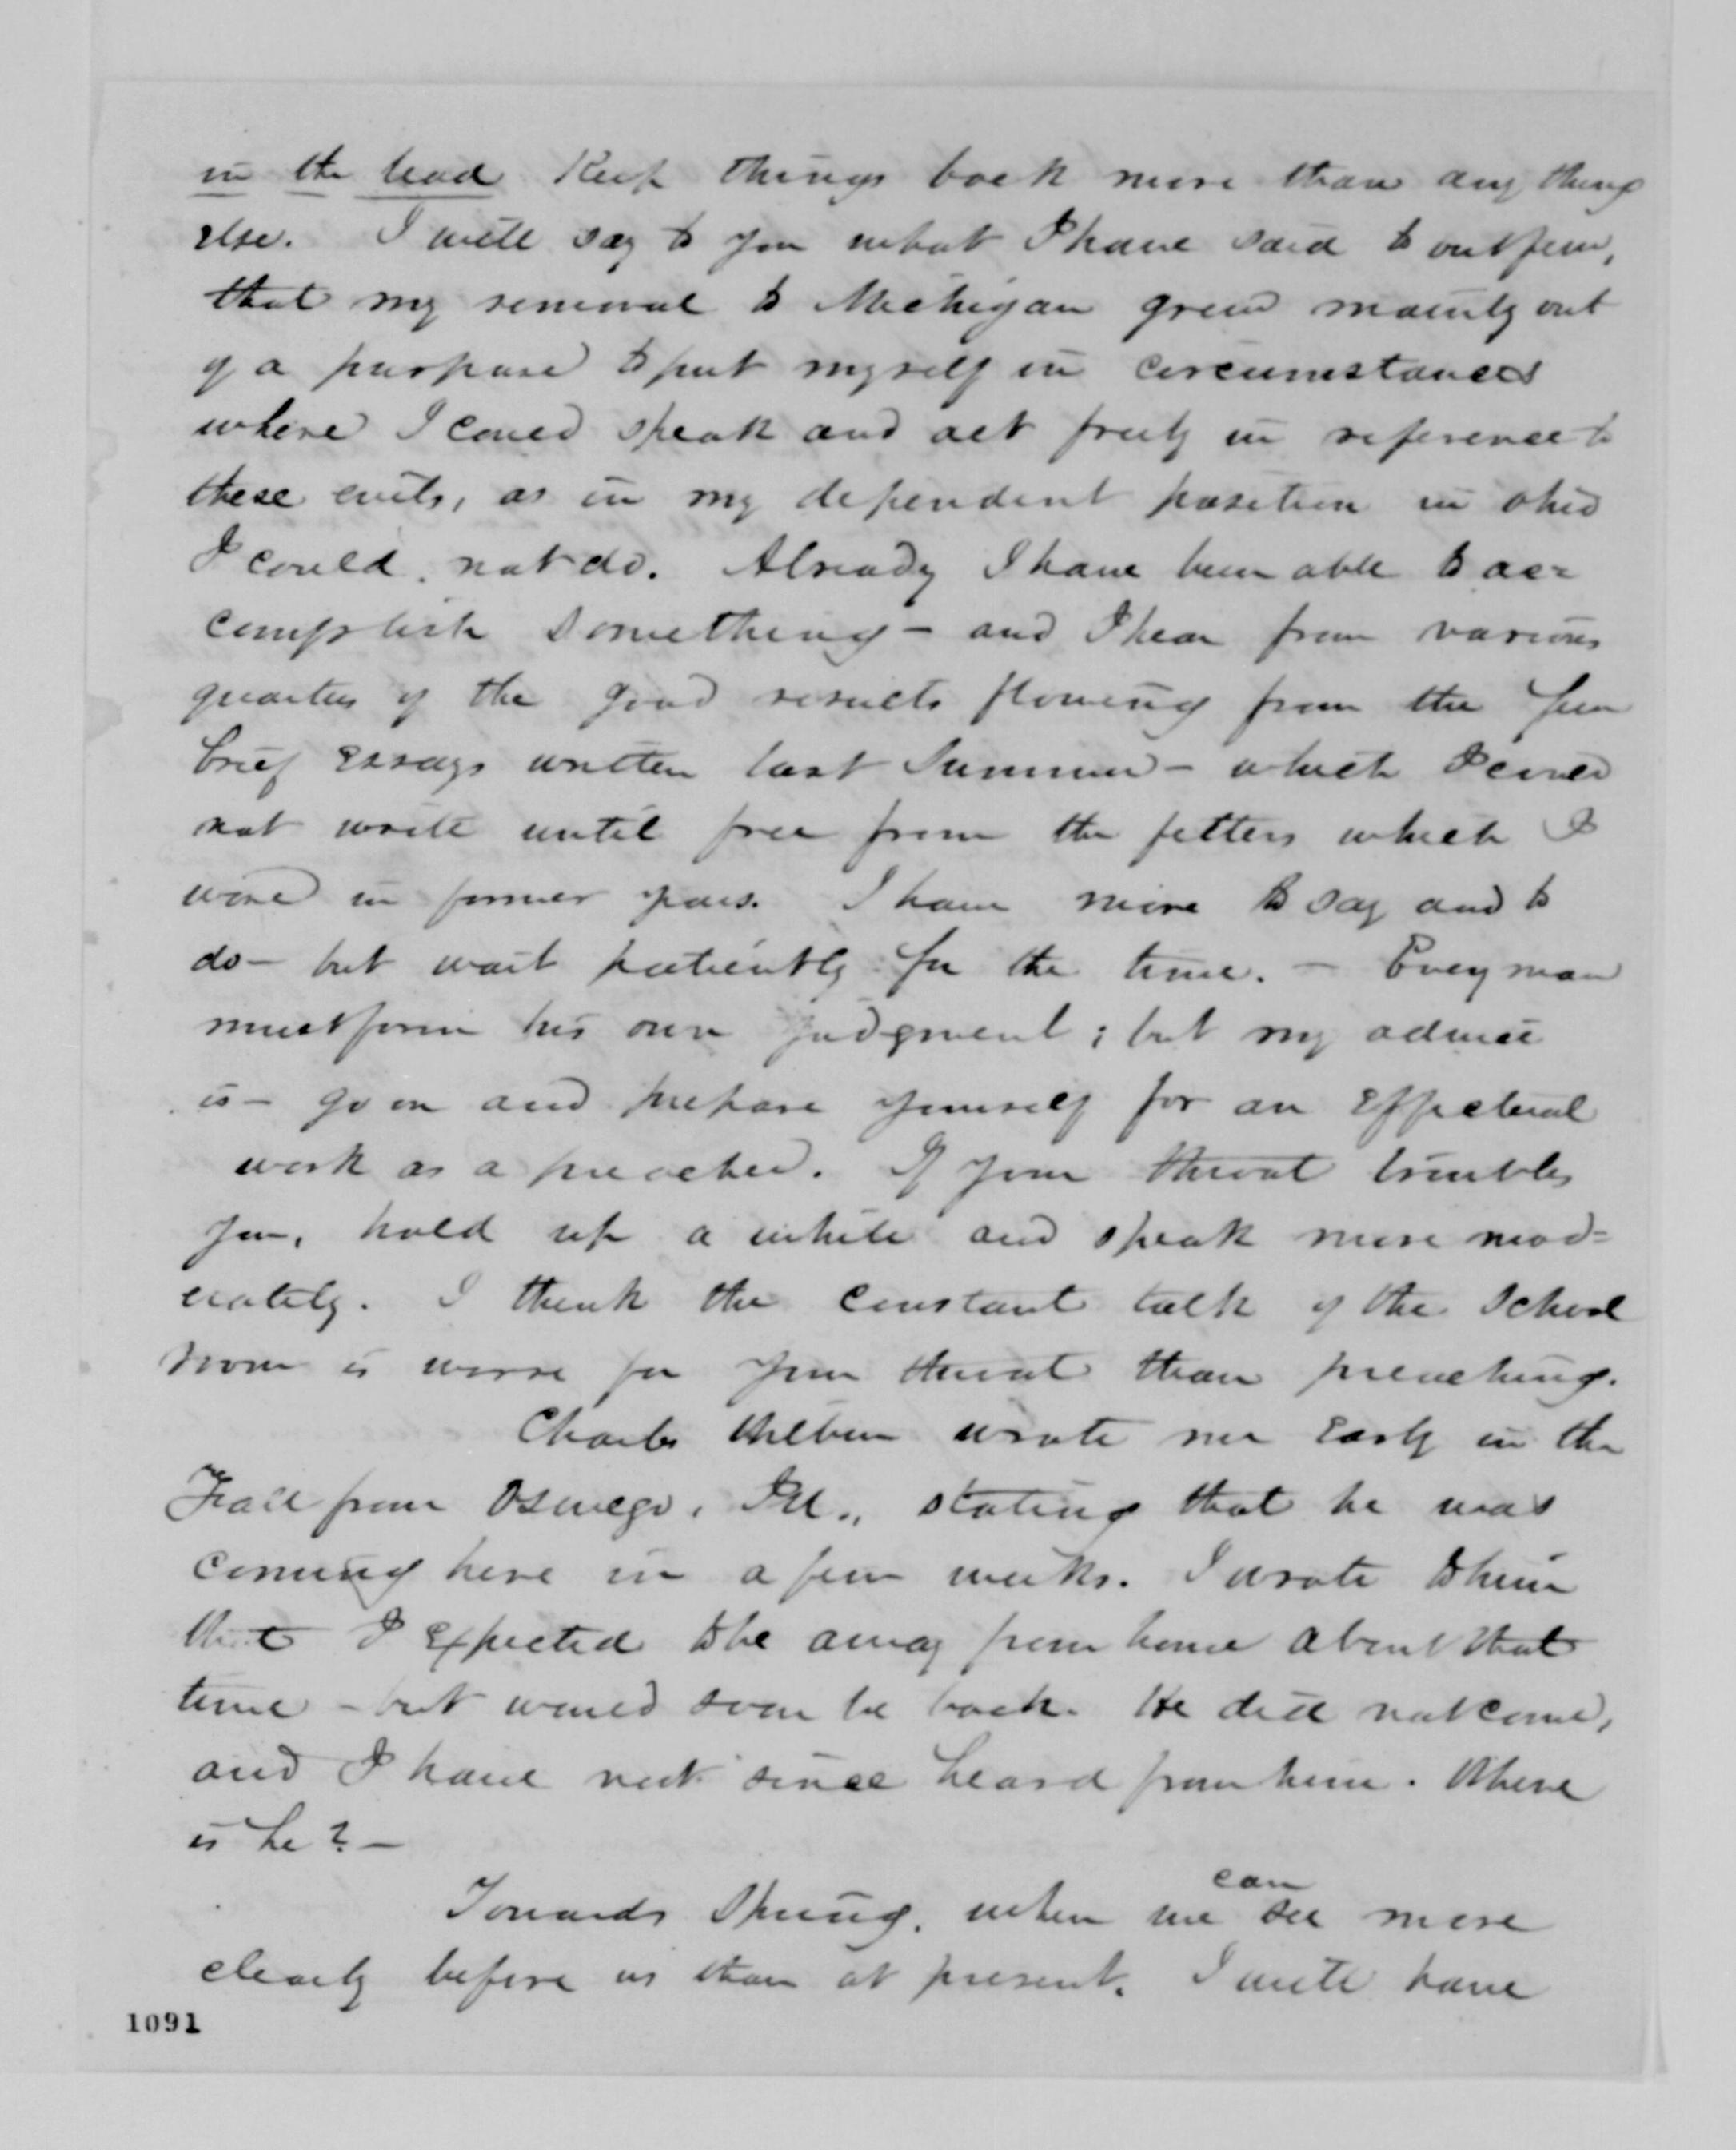 in the lead keep things back more than any thing
else. I will say to you what I have said to but few,
that my removal to Michigan grew mainly out
of a purpose to put myself in circumstances
where I could speak and act freely in reference to
these evils, as in my dependent position in Ohio
I could not do. Already I have been able to ac=
complish something - and I hear from various
quarters of the good results flowing from the few
brief essays written last Summer - which I could
not write until free from the fetters which I
wore in former years. I have more to say and to
do - but wait patiently for the time. - Every man
must form his own judgment; but my advice
is - go on and prepare yourself for an effectual
work as a preacher. If your throat troubles
you, hold up a while and speak more mod=
erately. I think the constant talk of the School
room is worse for your throat than preaching.
Charles wrote me early in the
Fall from Oswego, Ill., stating that he was
coming here in a few weeks. I wrote to him
that I expected to be away from home about that
time - but would soon be back. He did not come,
and I have not since heard from him. Where
is he? -
Towards Spring, when we can see more
clearly before us than at present, I will have
1091